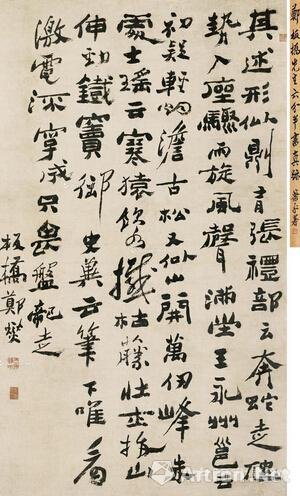 鄭板橋先生六分半書真跡
其述形似則有張禮部云奔蛇走虺
勢入座驟雨旋風聲滿坐王永州邕云
初疑輕烟澹古松又似山開萬仞峰朱
處士瑤云寒猿飲水撼枯藤壯士拔山
伸勁鐵竇御史冀云筆下唯看
激電流字成只畏盤龍走
板橋鄭燮